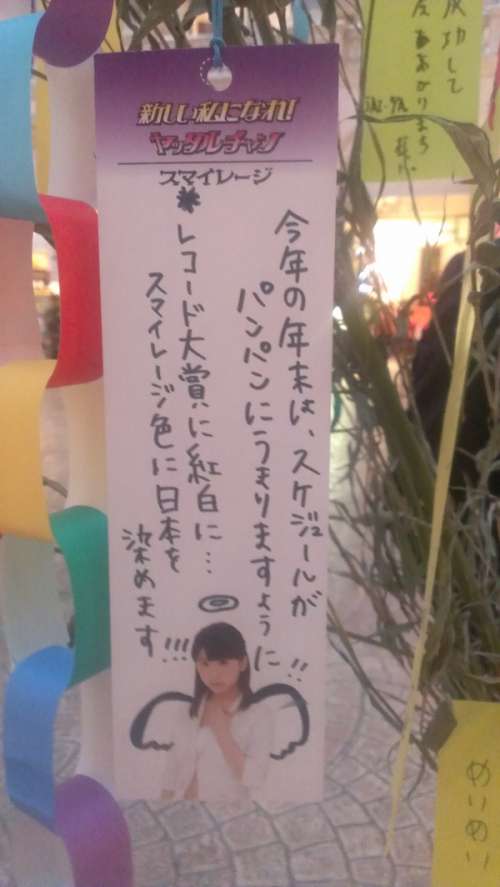 新しい私になれ!
ヤッタルチャン
スマイレージ
今年の年末は、スケジュールが
パンパンにうまりますように!!
レコード大賞に紅白に…
スマイレージ色に日本を
染めます!!!
成功して
めいめい